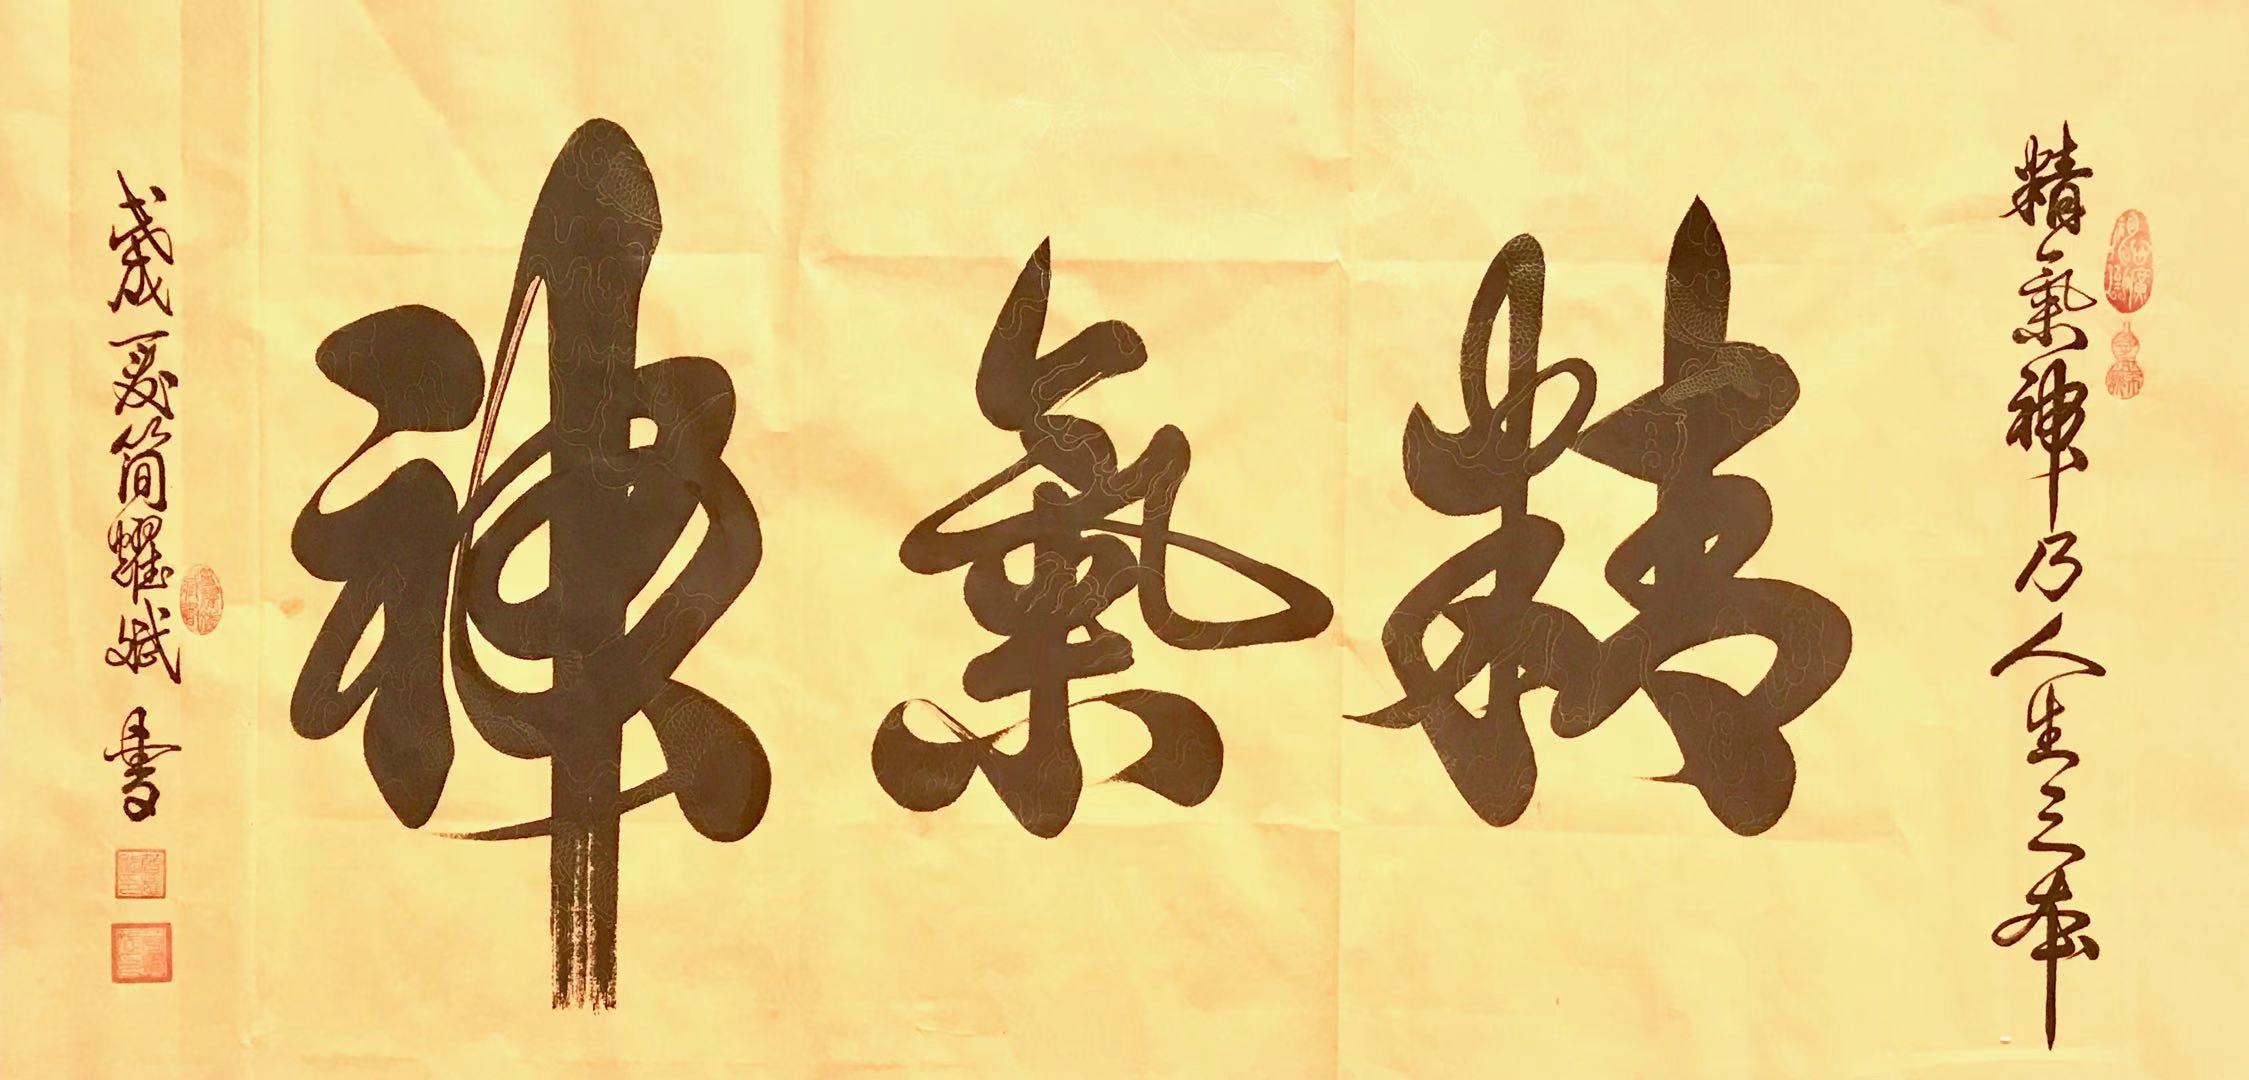 精氣神乃人生之本
精氣神
戊戌夏简耀斌書